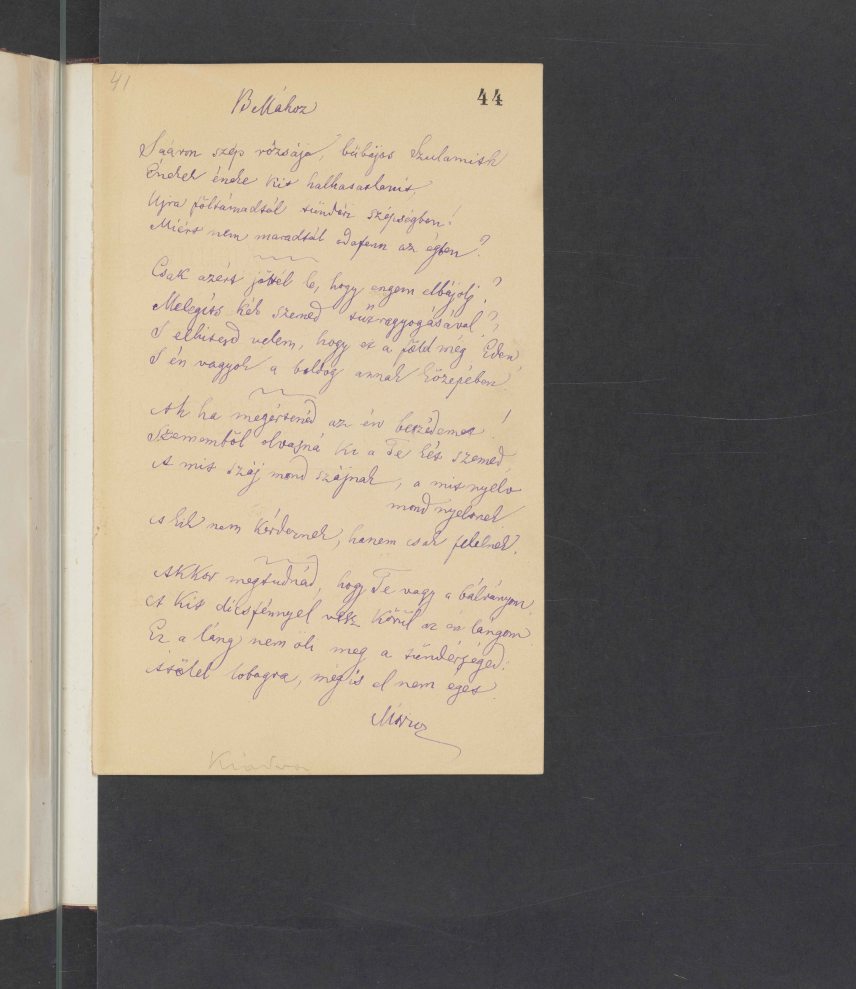 41
44
Bellához
Sááron szép rózsája, bübájos Szulamith
Énekek éneke kit halhatatlanit
Ujra föltámadtál tündéri szépségben!
Miért nem maradtál odafenn az égben?
Csak azért jöttél le, hogy engem elbájolj?
Melegits két szemed tüzragyogásával?
S elhitesd velem, hogy ez a föld még Éden
S én vagyok a boldog annak közepében.
Ah ha megértenéd az én beszédemet!
Szememből olvasná ki a Te két szemed
A mit száj mond szájnak, a mit nyelv
mond nyelvnek
A kik nem kérdeznek, hanem csak felelnek.
Akkor megtudnád, hogy Te vagy a bálványom
A Kit dicsfénnyel vesz körül az én lángom
Ez a láng nem öli meg a tündérséged:
lobogva, mégis el nem éget
Kiadva